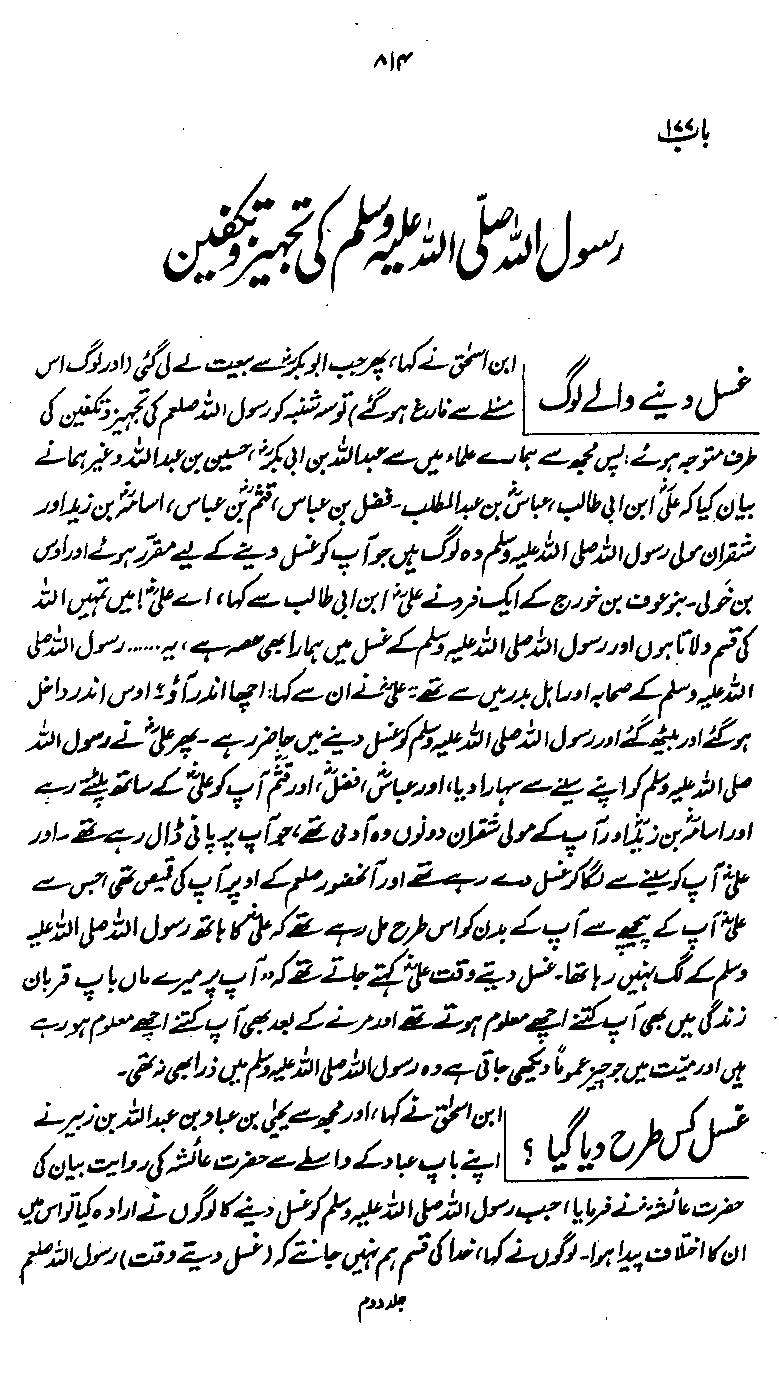 ۸۱۴
باب ۱۷۷
رسول اللہ صلّی اللہ علیہ وسلم کی تجہیز و تکفین
غسل دینے والے لوگ
ابن اسحٰق نے کہا، پھر جب ابوبکرؓ سے بیعت لے لی گئی (اور لوگ اس
مسئلے سے فارغ ہو گئے) تو سہ شنبہ کو رسول اللہ صلعم کی تجہیز و تکفین کی
طرف متوجہ ہوئے: پس مجھ سے ہمارے علماء میں سے عبداللہ بن ابی بکرؓ، حسین بن عبداللہ وغیرہما نے
بیان کیا کہ علیؓ ابن ابی طالب، عباسؓ بن عبدالمطلب۔ فضل بن عباس، قثمؓ بن عباس، اسامہؓ بن زید اور
شقران مولی رسول اللہ صلی اللہ علیہ وسلم وہ لوگ ہیں جو آپ کو غسل دینے کے لیے مقرر ہوئے اور اوس
بن خولی۔ بنو عوف بن خزرج کے ایک فرد نے علیؓ ابن ابی طالب سے کہا، اے علیؓ! میں تمہیں اللہ
کی قسم دلاتا ہوں اور رسول اللہ صلی اللہ علیہ وسلم کے غسل میں ہمارا بھی حصہ ہے، یہ ...... رسول اللہ صلی
اللہ علیہ وسلم کے صحابہ اور اہل بدر میں سے تھے۔ علیؓ نے ان سے کہا: اچھا اندر آؤ! اوس اندر داخل
ہو گئے اور بیٹھ گئے اور رسول اللہ صلی اللہ علیہ وسلم کو غسل دینے میں حاضر رہے۔ پھر علیؓ نے رسول اللہ
صلی اللہ علیہ وسلم کو اپنے سینے سے سہارا دیا، اور عباسؓ، فضلؓ، اور قثمؓ آپ کو علیؓ کے ساتھ پلٹتے رہے
اور اسامہؓ بن زیدؓ اور آپ کے مولی شقران دونوں وہ آدمی تھے، جو آپ پر پانی ڈال رہے تھے۔ اور
علیؓ آپ کو سینے سے لگا کر غسل دے رہے تھے اور آنحضور صلعم کے اوپر آپ کی قمیص تھی، جس سے
علیؓ آپ کے پیچھے سے آپ کے بدن کو اس طرح مل رہے تھے کہ علیؓ کا ہاتھ رسول اللہ صلی اللہ علیہ
وسلم کے لگ نہیں رہا تھا۔ غسل دیتے وقت علیؓ کہتے جاتے تھے کہ "آپ پر میرے ماں باپ قربان
زندگی میں بھی آپ کتنے اچھے معلوم ہوتے تھے اور مرنے کے بعد بھی آپ کتنے اچھے معلوم ہو رہے
ہیں اور میّت میں جو چیز عموماً دیکھی جاتی ہے وہ رسول اللہ صلی اللہ علیہ وسلم میں ذرا بھی نہ تھی۔
غسل کس طرح دیا گیا ؟
ابن اسحٰق نے کہا، اور مجھ سے یحیٰی بن عباد بن عبداللہ بن زبیر نے
اپنے باپ عباد کے واسطے سے حضرت عائشہ کی روایت بیان کی
حضرت عائشہؓ نے فرمایا، جب رسول اللہ صلی اللہ علیہ وسلم کو غسل دینے کا لوگوں نے ارادہ کیا تو اس میں
ان کا اختلاف پیدا ہوا۔ لوگوں نے کہا، خدا کی قسم ہم نہیں جانتے کہ (غسل دیتے وقت) رسول اللہ صلعم
جلد دوم